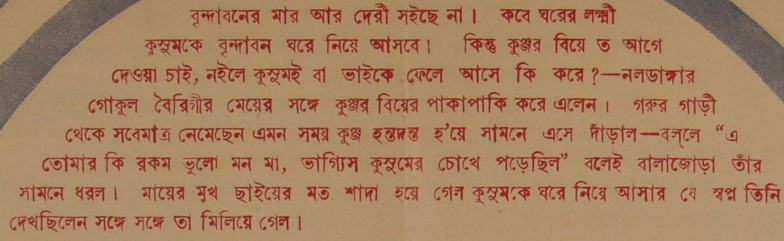 বৃন্দাবনের মার আর দেরী সইছে না। কবে ঘরের লক্ষ্মী
কুসুমকে বৃন্দাবন ঘরে নিয়ে আসবে। কিন্তু কুঞ্জর বিয়ে ত আগে
দেওয়া চাই, নইলে কুসুমই বা ভাইকে ফেলে আসে কি করে?—নলডাঙ্গার
গোকুল বৈরিগীর মেয়ের সঙ্গে কুঞ্জর বিয়ের পাকাপাকি করে এলেন। গরুর গাড়ী
থেকে সবেমাত্র নেমেছেন এমন সময় কুঞ্জ হন্তদন্ত হ'য়ে সামনে এসে দাঁড়াল—বল্‌লে “এ
তোমার কি রকম ভুলো মন মা, ভাগ্যিস কুসুমের চোখে পড়েছিল” বলেই বালাজোড়া তাঁর
সামনে ধরল। মায়ের মুখ ছাইয়ের মত শাদা হয়ে গেল কুসুমকে ঘরে নিয়ে আসার যে স্বপ্ন তিনি
দেখছিলেন সঙ্গে সঙ্গে তা মিলিয়ে গেল।